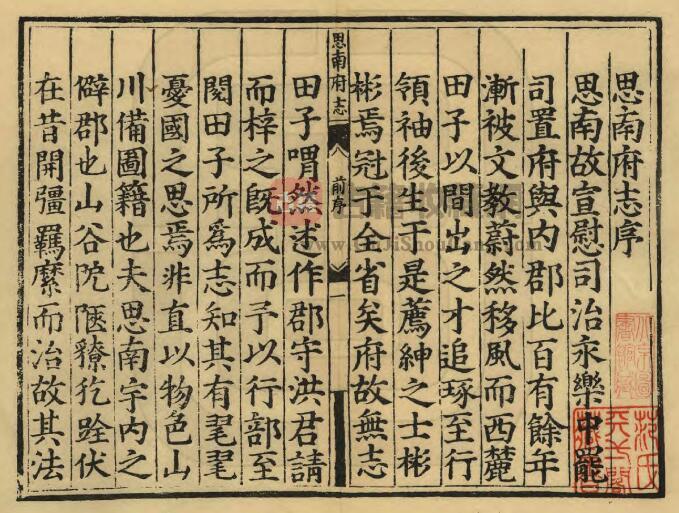 思南府志序
思南故宣慰司治永樂中罷
司置府與內郡比百有餘年
漸被文教蔚然移風而西麓
田子以間出之才追琢至行
領袖後生于是薦紳之士彬
彬焉冠于全省矣府故無志
思南府志
前序
一
田子喟然述作郡守洪君請
而梓之旣成而予以行部至
閱田子所爲志知其有毣毣
憂國之思焉非直以物色山
川備圖籍也夫思南宇内之
僻郡也山谷阸陿獠犵跧伏
在昔開彊羈縻而治故其法
范氏
天一閣